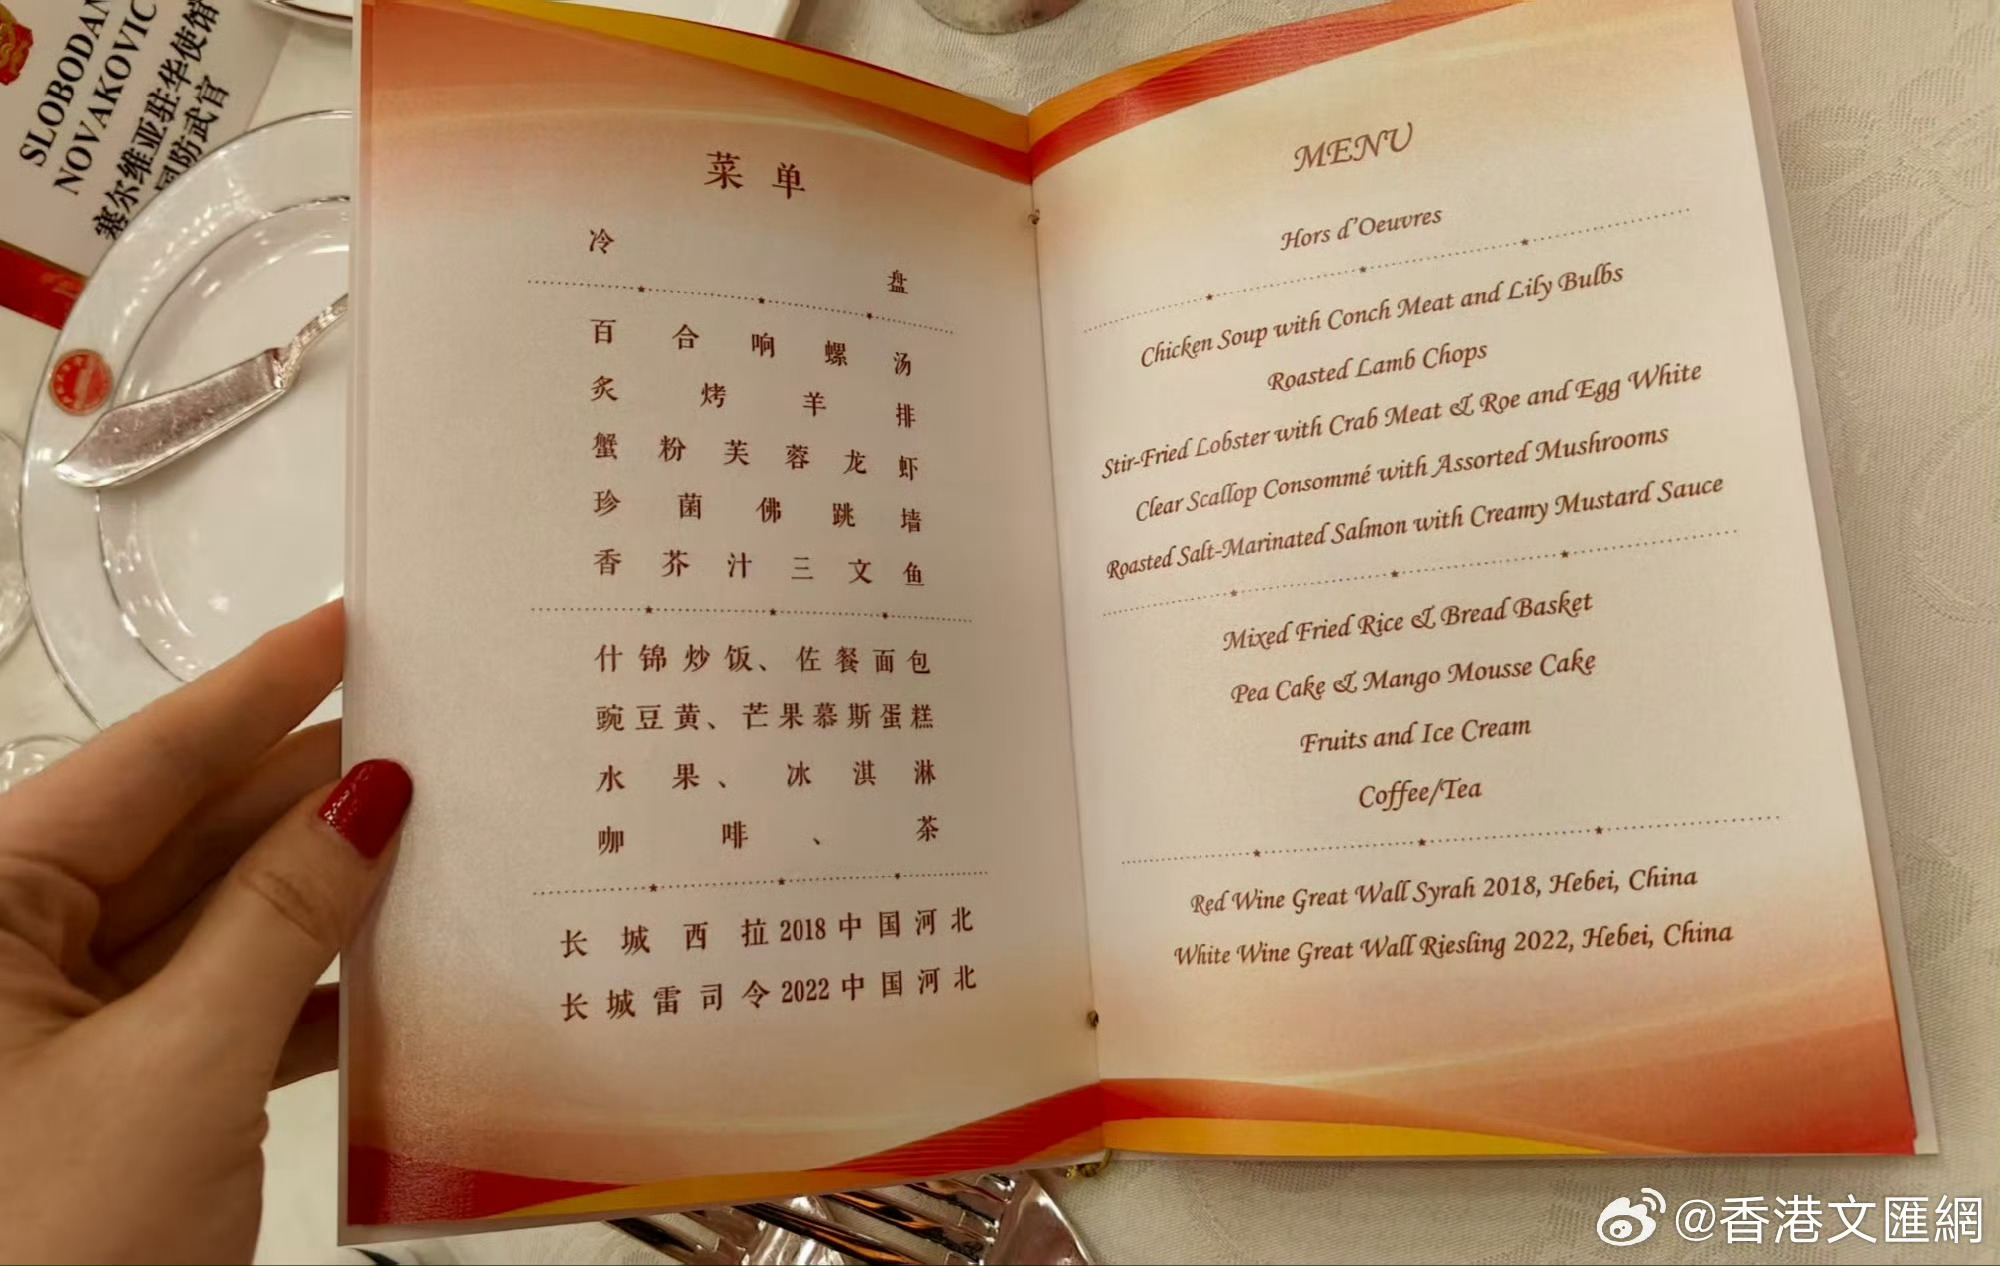 SLOBODAN
NOVAKOVIC
塞尔维亚驻华使馆
国防武官
菜单
冷盘
百合响螺汤
炙烤羊排
蟹粉芙蓉龙虾
珍菌佛跳墙
香芥汁三文鱼
什锦炒饭、佐餐面包
豌豆黄、芒果慕斯蛋糕
水果、冰淇淋
咖啡、茶
长城西拉2018中国河北
长城雷司令2022中国河北
MENU
Hors d'Oeuvres
Chicken Soup with Conch Meat and Lily Bulbs
Roasted Lamb Chops
Stir-Fried Lobster with Crab Meat & Roe and Egg White
Clear Scallop Consommé with Assorted Mushrooms
Roasted Salt-Marinated Salmon with Creamy Mustard Sauce
Mixed Fried Rice & Bread Basket
Pea Cake & Mango Mousse Cake
Fruits and Ice Cream
Coffee/Tea
Red Wine Great Wall Syrah 2018, Hebei, China
White Wine Great Wall Riesling 2022, Hebei, China
@香港文匯網